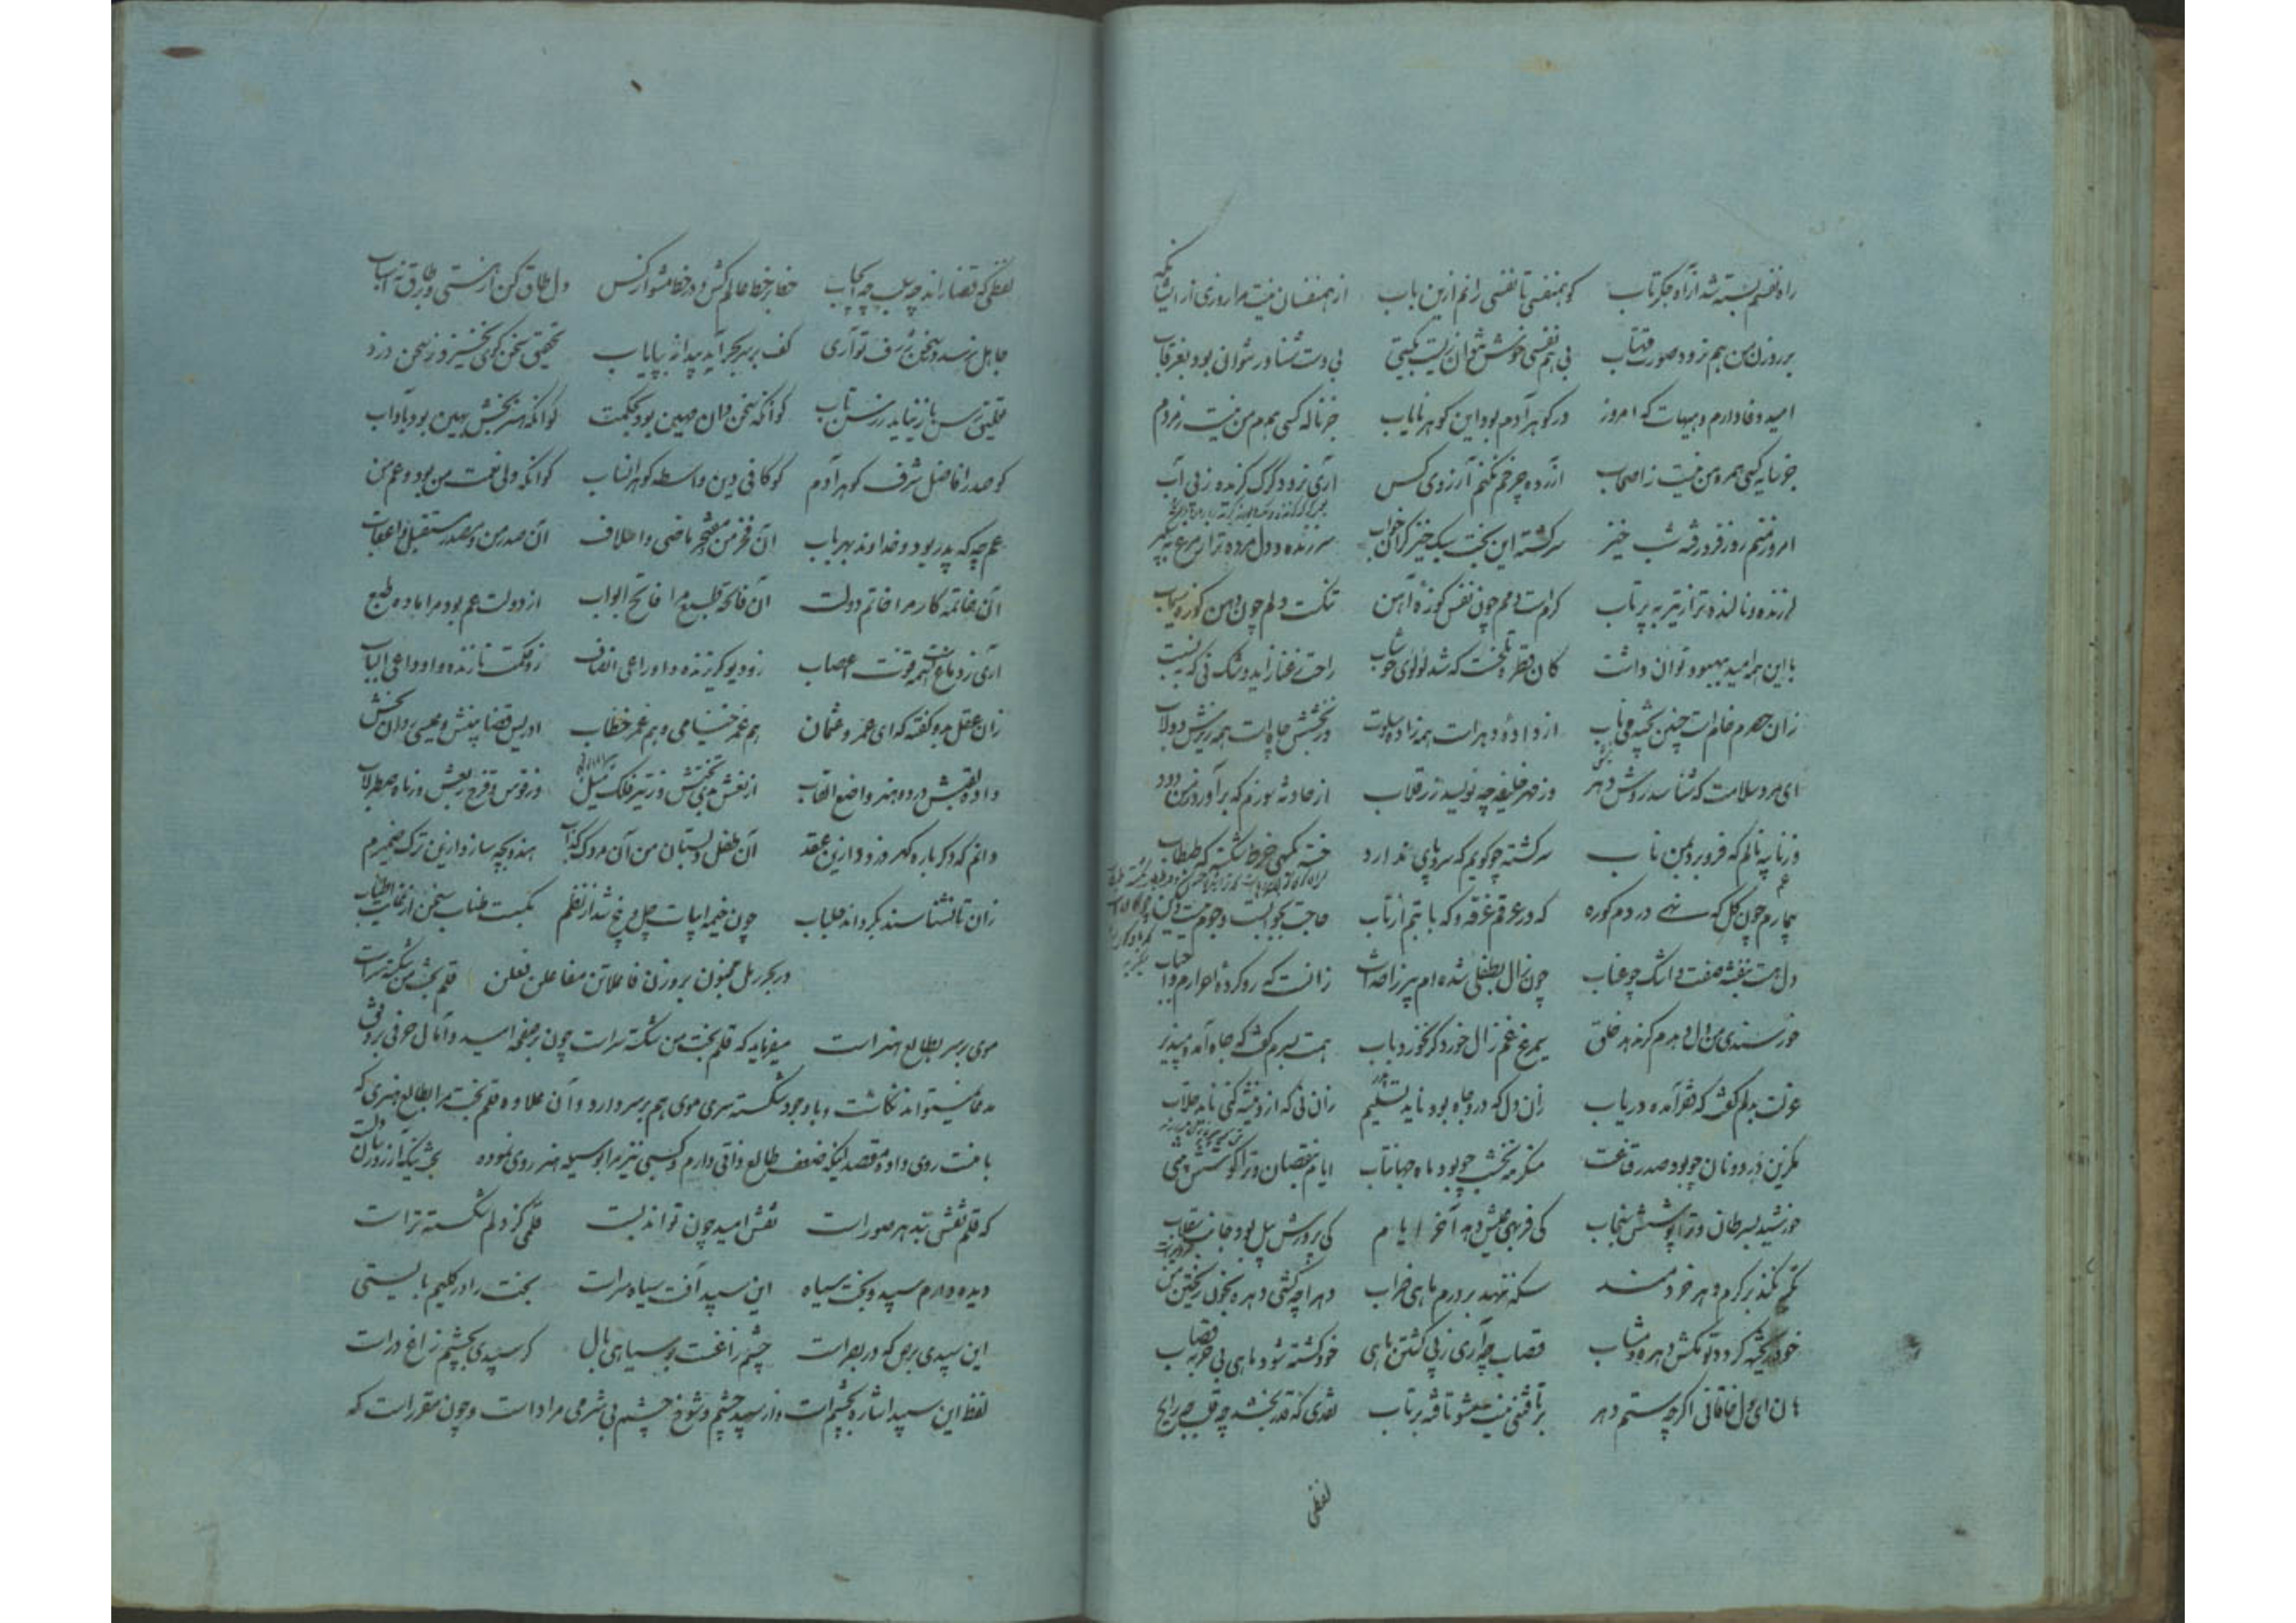 راه نفسم بسته شد از آه جگرتاب کو همنفسی تا نفسی رانم ازین باب از همنفسان نیست مرا روزی ازیرا که
بر روزن من هم نرود صورت مهتاب بی هم نفسی خوش نتوان زیست بگیتی بی دست شناور نتوان بود بغرقاب
امید وفا دارم و هیهات که امروز در گوهر آدم بود این گوهر نایاب جز ناله کسی همدم من نیست ز مردم
جز سایه کسی همره من نیست ز اصحاب آزرده چرخم نکنم آرزوی کس آری نرود گرگ گزیده ز پی آب
امروز منم روز فرو رفته و شب خیز سرگشته ازین بخت سبک خیز گران خواب سر زنده و دل مرده تر از مرغ
لرزنده و نالنده تر از تیر به پرتاب گرم است دمم چون نفس کوره آهن تنگ است دلم چون دهن کوره سیماب
با این همه امید ببهبود توان داشت کان قطره تلخست که شد لؤلؤی خوشاب راحت ز عنا زاید و شک نی که به نسبت
زان حصرم خام است چنین پخته می ناب از داده دهر است همه زاده سلوت در بخشش چاه است همه ریزش دولاب
ای مرد سلامت که شناسد روش دهر وز مهر خلیفه چه نویسد زر قلاب از حادثه سوزم که برآورد ز من دود
وز نایبه نالم که فرو برد بمن ناب سرگشته چو گویم که سر و پای ندارد خسته
بیمارم چون گل که نهی در دم کوره گه در عرقم غرقه و گه با تبم از تاب حاجت بجوابست و جوم نیست
دل هست بنفشه صفت و اشک چو عناب چون زال بطفلی شده ام پیر ز احداث زانست که رد کرده احرارم و احباب
خورسندی من دل دهدم گر ندهد خلق سیمرغ غم زال خورد گر نخورد باب همت بسرم گفت که جاه آمد مپذیر
عزلت بدلم گفت که فقر آمده دریاب زان دل که درو جاه بود ناید تسلیم زان نی که ازو نیشه کنی ناید جلاب
مگزین در دونان چو بود صدر قناعت منگر مه نخشب چو بود ماه جهانتاب ایام بنقصان و ترا کوشش بیشی
خورشید بسرطان و ترا پوشش سنجاب کی فربهی عیش دهد آخر ایام کی پرورش پیل بود جانب سقلاب
نکند بر کرم دهر خردمند سکه ننهد بر درم ماهی ضراب دهرا چه کشی دهره بخون ریختن من
خود کشته گردد تو مکش دهره و مشتاب قصاب چه آری ز پی کشتن ماهی خود کشته شود ماهی بی حربه قصاب
هان ای دل خاقانی اگر چه ستم دهر برتافتنی نیست مشو تافته برتاب نقدی که قدر بخشد چه قلب چه رایج
لفظی
لفظی که قضا راند چه سلب چه ایجاب خط بر خط عالم کش و در خط مشو از کس دل طاق کن از هستی و بر طاق نه اسباب
جاهل نرسد در سخن ژرف تو آری کف بر سر بحر آید پیدا نه بپایاب تحقیق سخن گوی نخیزد ز سخن دزد
تعلیق رسن باز نیاید ز رسن تاب کو آنکه سخن دان مهین بود بحکمت کو آنکه هنربخش بهین بود بآداب
کو صدر افاضل شرف گوهر آدم کو کافی دین واسطه گوهر انساب کو آنکه ولی نعمت من بود و عم من
عم چه که پدر بود و خداوند بهر باب آن فخر من و مفتخر ماضی و اسلاف آن صدر من و مصدر مستقبل و اعقاب
آن خاتمه کار مرا خاتم دولت آن فاتحه طبع مرا فاتح ابواب از دولت عم بود مرا ماده طبع
آری ز دماغست همه قوت اعصاب زو دیو گریزنده و او داعی انصاف زو حکمت نازنده و او داعی الباب
زان عقل بدو گفته که ای عمر و عثمان هم عمر خیامی و هم عمر خطاب ادریس قضا بینش و عیسی روان بخش
داده لقبش در دو هنر واضع القاب از نقش پی تختش وز تیر فلک میل وز قوس و قزح ربعش وز ماه صطرلاب
دانم که دگر باره گهر دزدد ازین عقد آن طفل دبستان من آن مردک کذاب هندو بچه سازد ازین ترک ضمیرم
زان تا نشناسند بگرداند جلباب چون خیمه ابیات چهل و پنج شد از نظم بگسست طناب سخن از غایت اطناب
در بحر رمل مخبون بر وزن فاعلاتن مفاعلن فعلن قلم بخت من شکسته سرست
موی بر سر بطالع هنر است میفرماید که قلم بخت من شکسته سر است چون بر صفحه امید و آمال حرفی بر وفق
مدعا نمیتواند نگاشت و با وجود شکسته سری موی هم بر سر دارد و آن علاوه قلم بخت مرا بطالع هنری که
با منست روی داده و مقصد اینکه ضعف طالع ذاتی دارم و کسبی نیز مرا بوسیله هنر روی نموده
که قلم نقش بند هر صورست نقش امید چون تواند بست قلمی کز دلم شکسته ترست
دیده دارم سپید و بخت سیاه این سپید آفت سیاه سرست بخت را در گلیم بایستی
این سپیدی برص که در بصرست چشم زاغست بر سیاهی بال گر سپیدی بچشم زاغ درست
لفظ این سپید اشاره بچشم است و از سپید چشم و شوخ چشم بی شرمی مراد است و چون مقرر است که